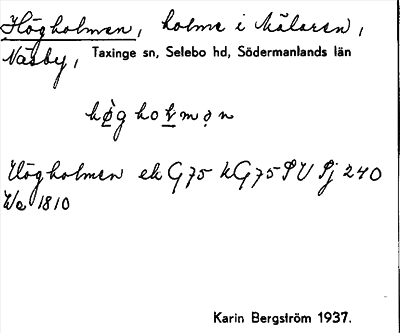 Högholmen, holme i Mälaren,
Näsby, Taxinge sn, Selebo hd, Södermanlands län
hö̀gholmən
Högholmen ek G75 kG75 PU Pj 240
1810
Karin Bergström 1937.